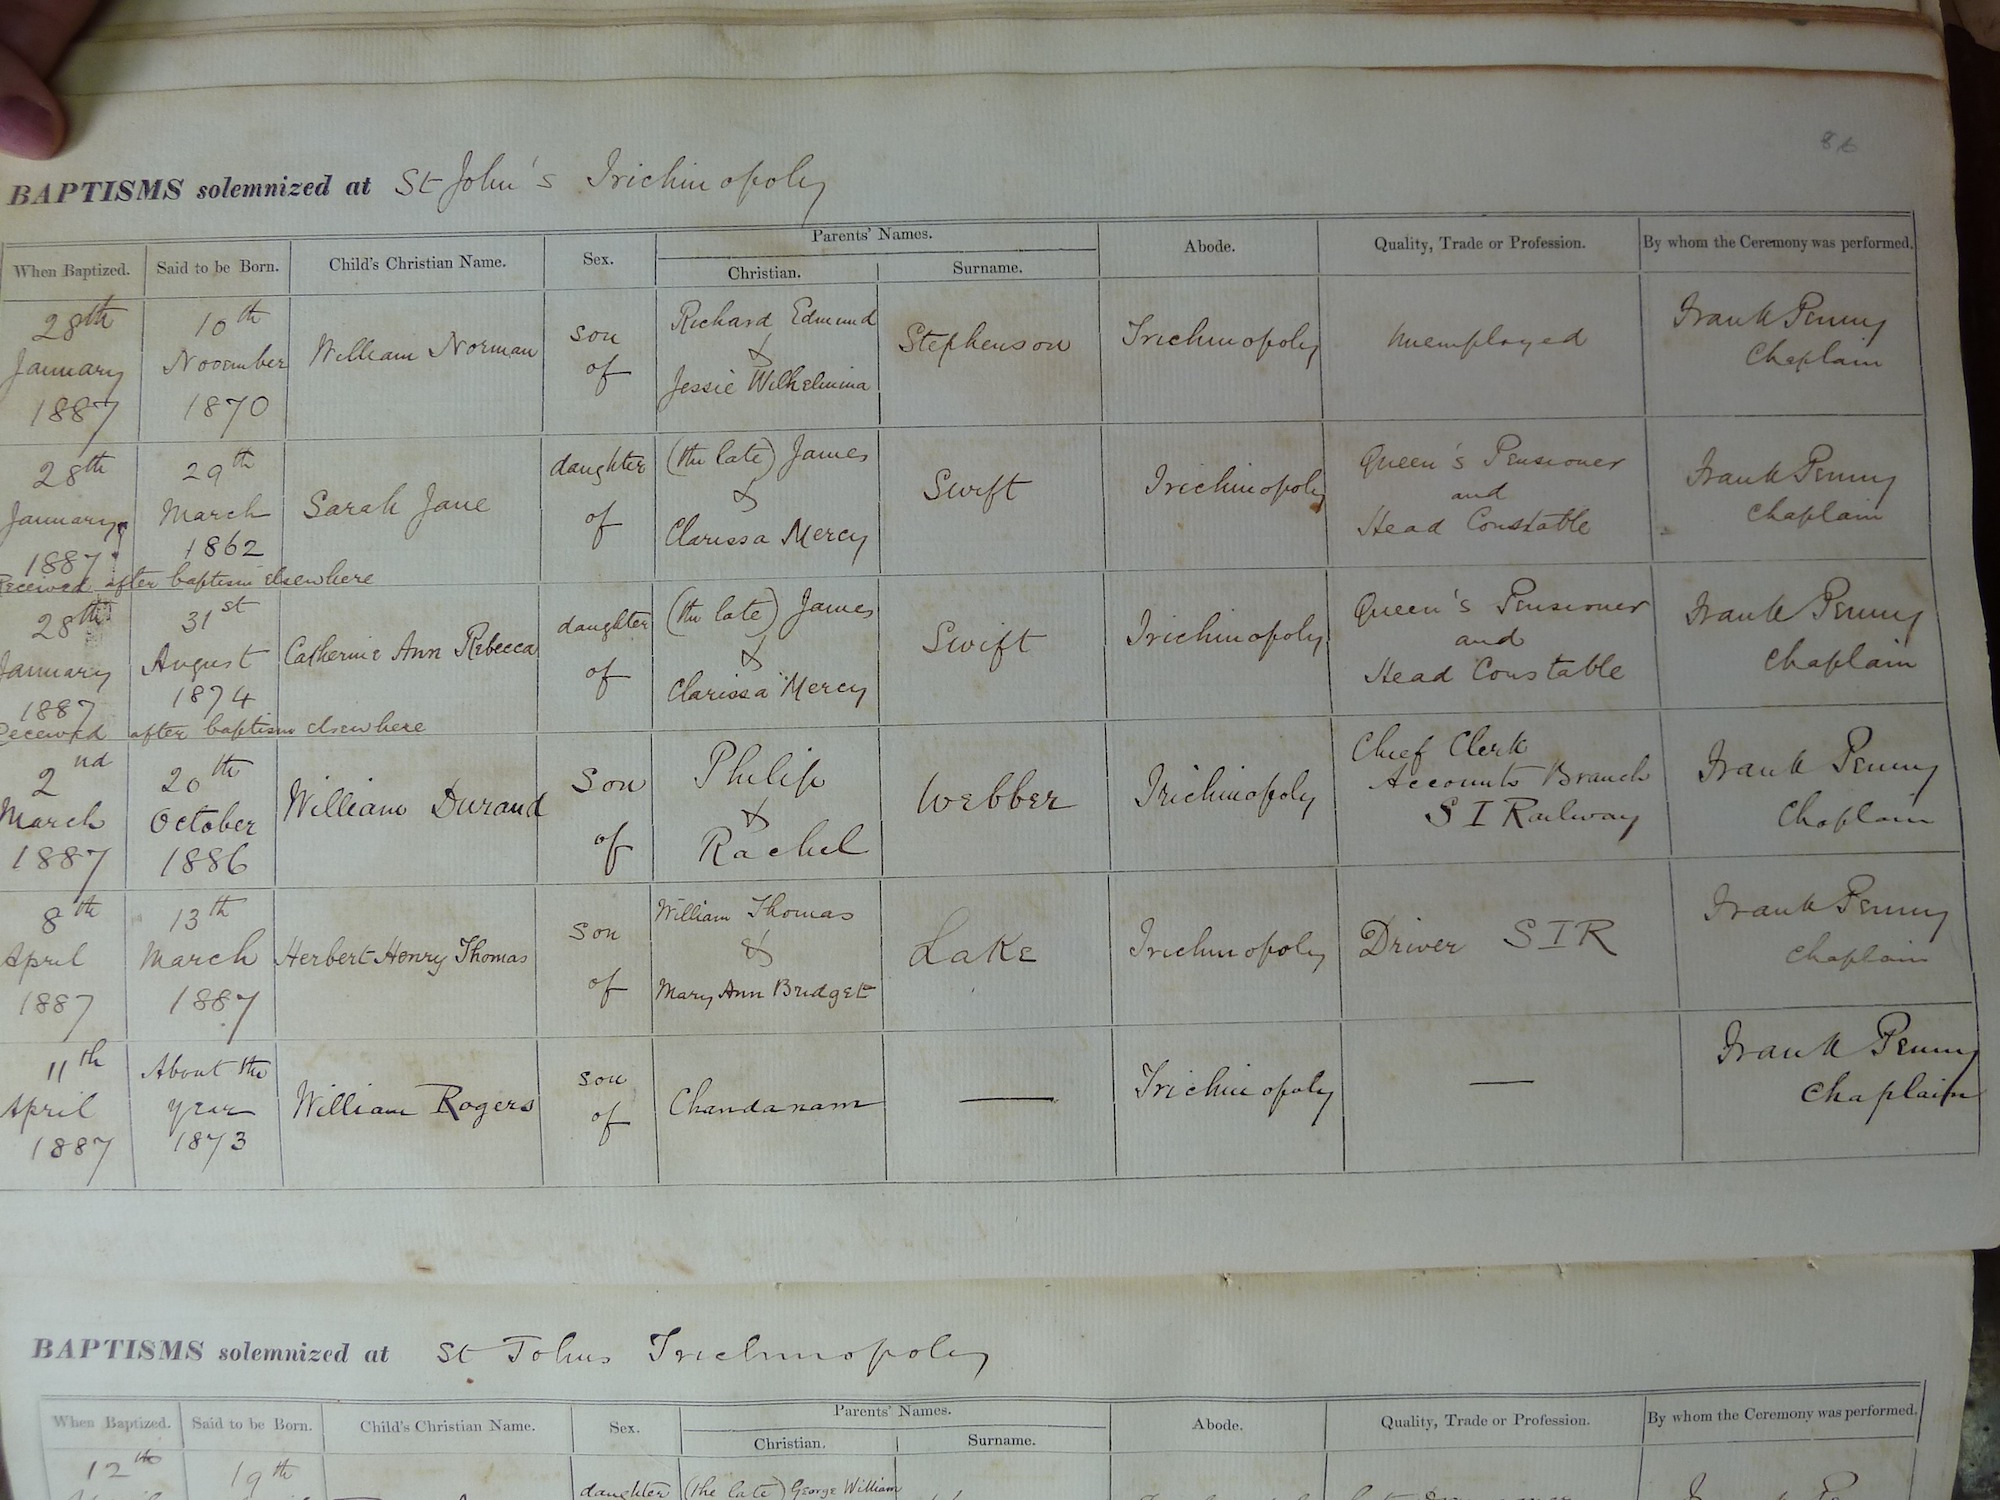 86
BAPTISMS solemnized at St John's Trichinopoly
When Baptized. Said to be Born. Child's Christian Name. Sex. Parents' Names. Christian. Surname. Abode. Quality, Trade or Profession. By whom the Ceremony was performed.
28th January 1887 10th November 1870 William Norman son of Richard Edmund & Jessie Wilhelmina Stephenson Trichinopoly Unemployed Frank Penny Chaplain
28th January 1887 29th March 1862 Sarah Jane daughter of (the late) James & Clarissa Mercy Swift Trichinopoly Queen's Pensioner and Head Constable Frank Penny Chaplain
Received after baptism elsewhere
28th January 1887 31st August 1874 Catherine Ann Rebecca daughter of (the late) James & Clarissa Mercy Swift Trichinopoly Queen's Pensioner and Head Constable Frank Penny Chaplain
Received after baptism elsewhere
2nd March 1887 20th October 1886 William Durand son of Philip & Rachel Webber Trichinopoly Chief Clerk Accounts Branch S I Railway Frank Penny Chaplain
8th April 1887 13th March 1887 Herbert Henry Thomas son of William Thomas & Mary Ann Bridget Lake Trichinopoly Driver SIR Frank Penny Chaplain
11th April 1887 About the year 1873 William Rogers son of Chandanam — Trichinopoly — Frank Penny Chaplain
BAPTISMS solemnized at St Johns Trichinopoly
When Baptized. Said to be Born. Child's Christian Name. Sex. Parents' Names. Christian. Surname. Abode. Quality, Trade or Profession. By whom the Ceremony was performed.
12th 19th daughter (the late) George William